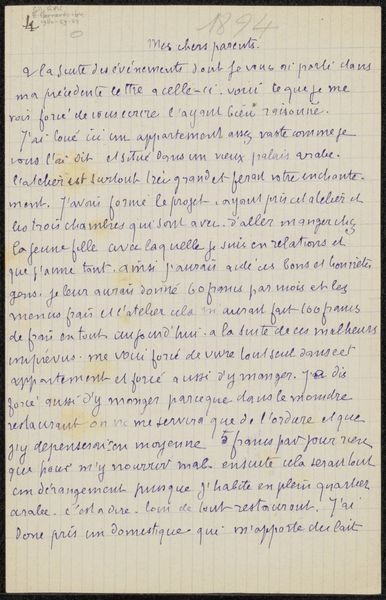 4
1894
Mes chers parents.
à la suite des événements dont je vous ai parlé dans
ma précédente lettre à celle-ci. voici ce que je me
vois forcé de vous écrire l'ayant bien raisonné.
J'ai loué ici un appartement assez vaste comme je
vous l'ai dit et situé dans un vieux palais arabe.
l'atelier est surtout très grand et ferait votre enchante-
ment. J'avais formé le projet, ayant pris cet atelier et
les trois chambres qui sont avec. d'aller manger chez
la jeune fille avec laquelle je suis en relations et
que j'aime tant. ainsi j'aurais aidé ces bons et honnêtes
gens. je leur aurais donné 60 francs par mois et les
menus frais et l'atelier cela m'aurait fait 100 francs
de frais en tout aujourd'hui. à la suite de ces malheurs
imprévus. me voici forcé de vivre tout seul dans cet
appartement et forcé aussi d'y manger. Je dis
forcé aussi d'y manger parceque dans le moindre
restaurant on ne me servira que de l'ordure et que
j'y dépenserai en moyenne 5 francs par jour rien
que pour m'y nourrir mal. ensuite cela serait tout
un dérangement puisque j'habite en plein quartier
arabe. c'est à dire. loin de tout restaurant. J'ai
donc pris un domestique qui m'apporte du lait